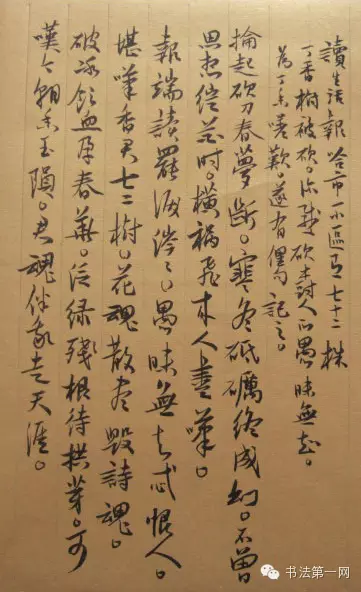 讀生活報哈市一小區有七十二株
丁香樹被砍。砍樹人的愚昧無知。
為丁香嗟歎。遂有俚句記之。
掄起砍刀春夢斷。寒冬砥礪終成幻。不曾
思綻花時。橫禍飛來人盡嘆。
報端讀罷淚涔々。愚昧無知忒恨人。
堪嘆香君七二樹。花魂散盡毀詩魂。
破冰飲血孕春華。泛绿殘根待拱芽。可
嘆今朝香玉隕。君魂伴我走天涯。
书法第一网